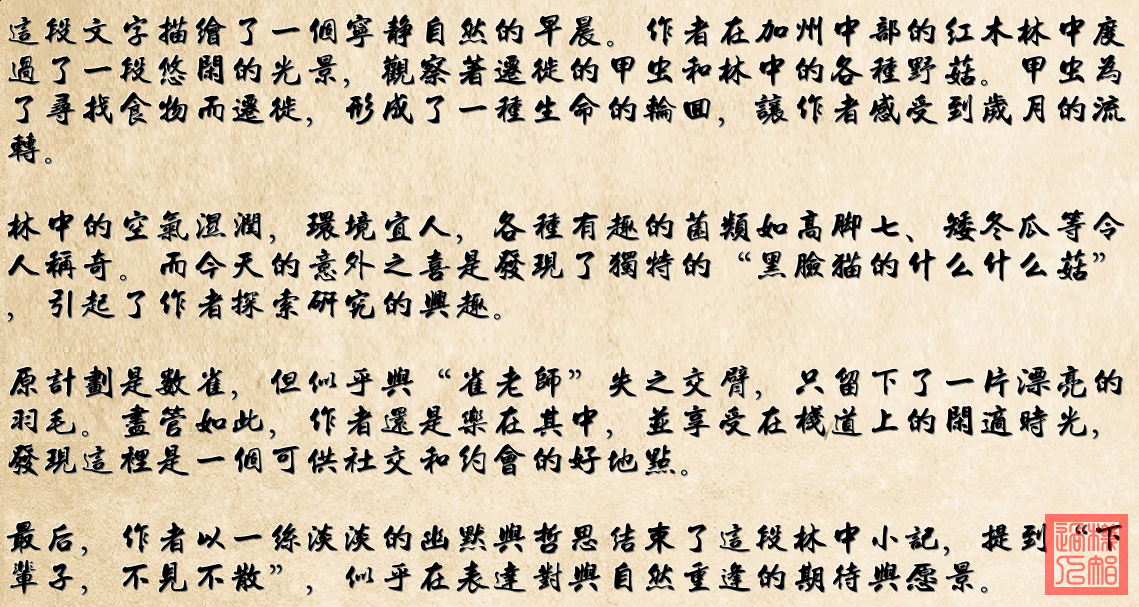 這段文字描繪了一個寧静自然的早晨。作者在加州中部的红木林中度
過了一段悠閑的光景，觀察著遷徙的甲虫和林中的各種野菇。甲虫為
了尋找食物而遷徙，形成了一種生命的輪回，讓作者感受到歲月的流
轉。
林中的空氣濕潤，環境宜人，各種有趣的菌類如高脚七、矮冬瓜等令
人稱奇。而今天的意外之喜是發現了獨特的“黑臉猫的什么什么菇”
，引起了作者探索研究的興趣。
原計劃是數雀，但似乎與“雀老師”失之交臂，只留下了一片漂亮的
羽毛。盡管如此，作者還是樂在其中，並享受在棧道上的閑適時光，
發現這裡是一個可供社交和约會的好地點。
最后，作者以一絲淡淡的幽默與哲思结束了這段林中小記，提到“下
輩子，不見不散”，似乎在表達對與自然重逢的期待與愿景。